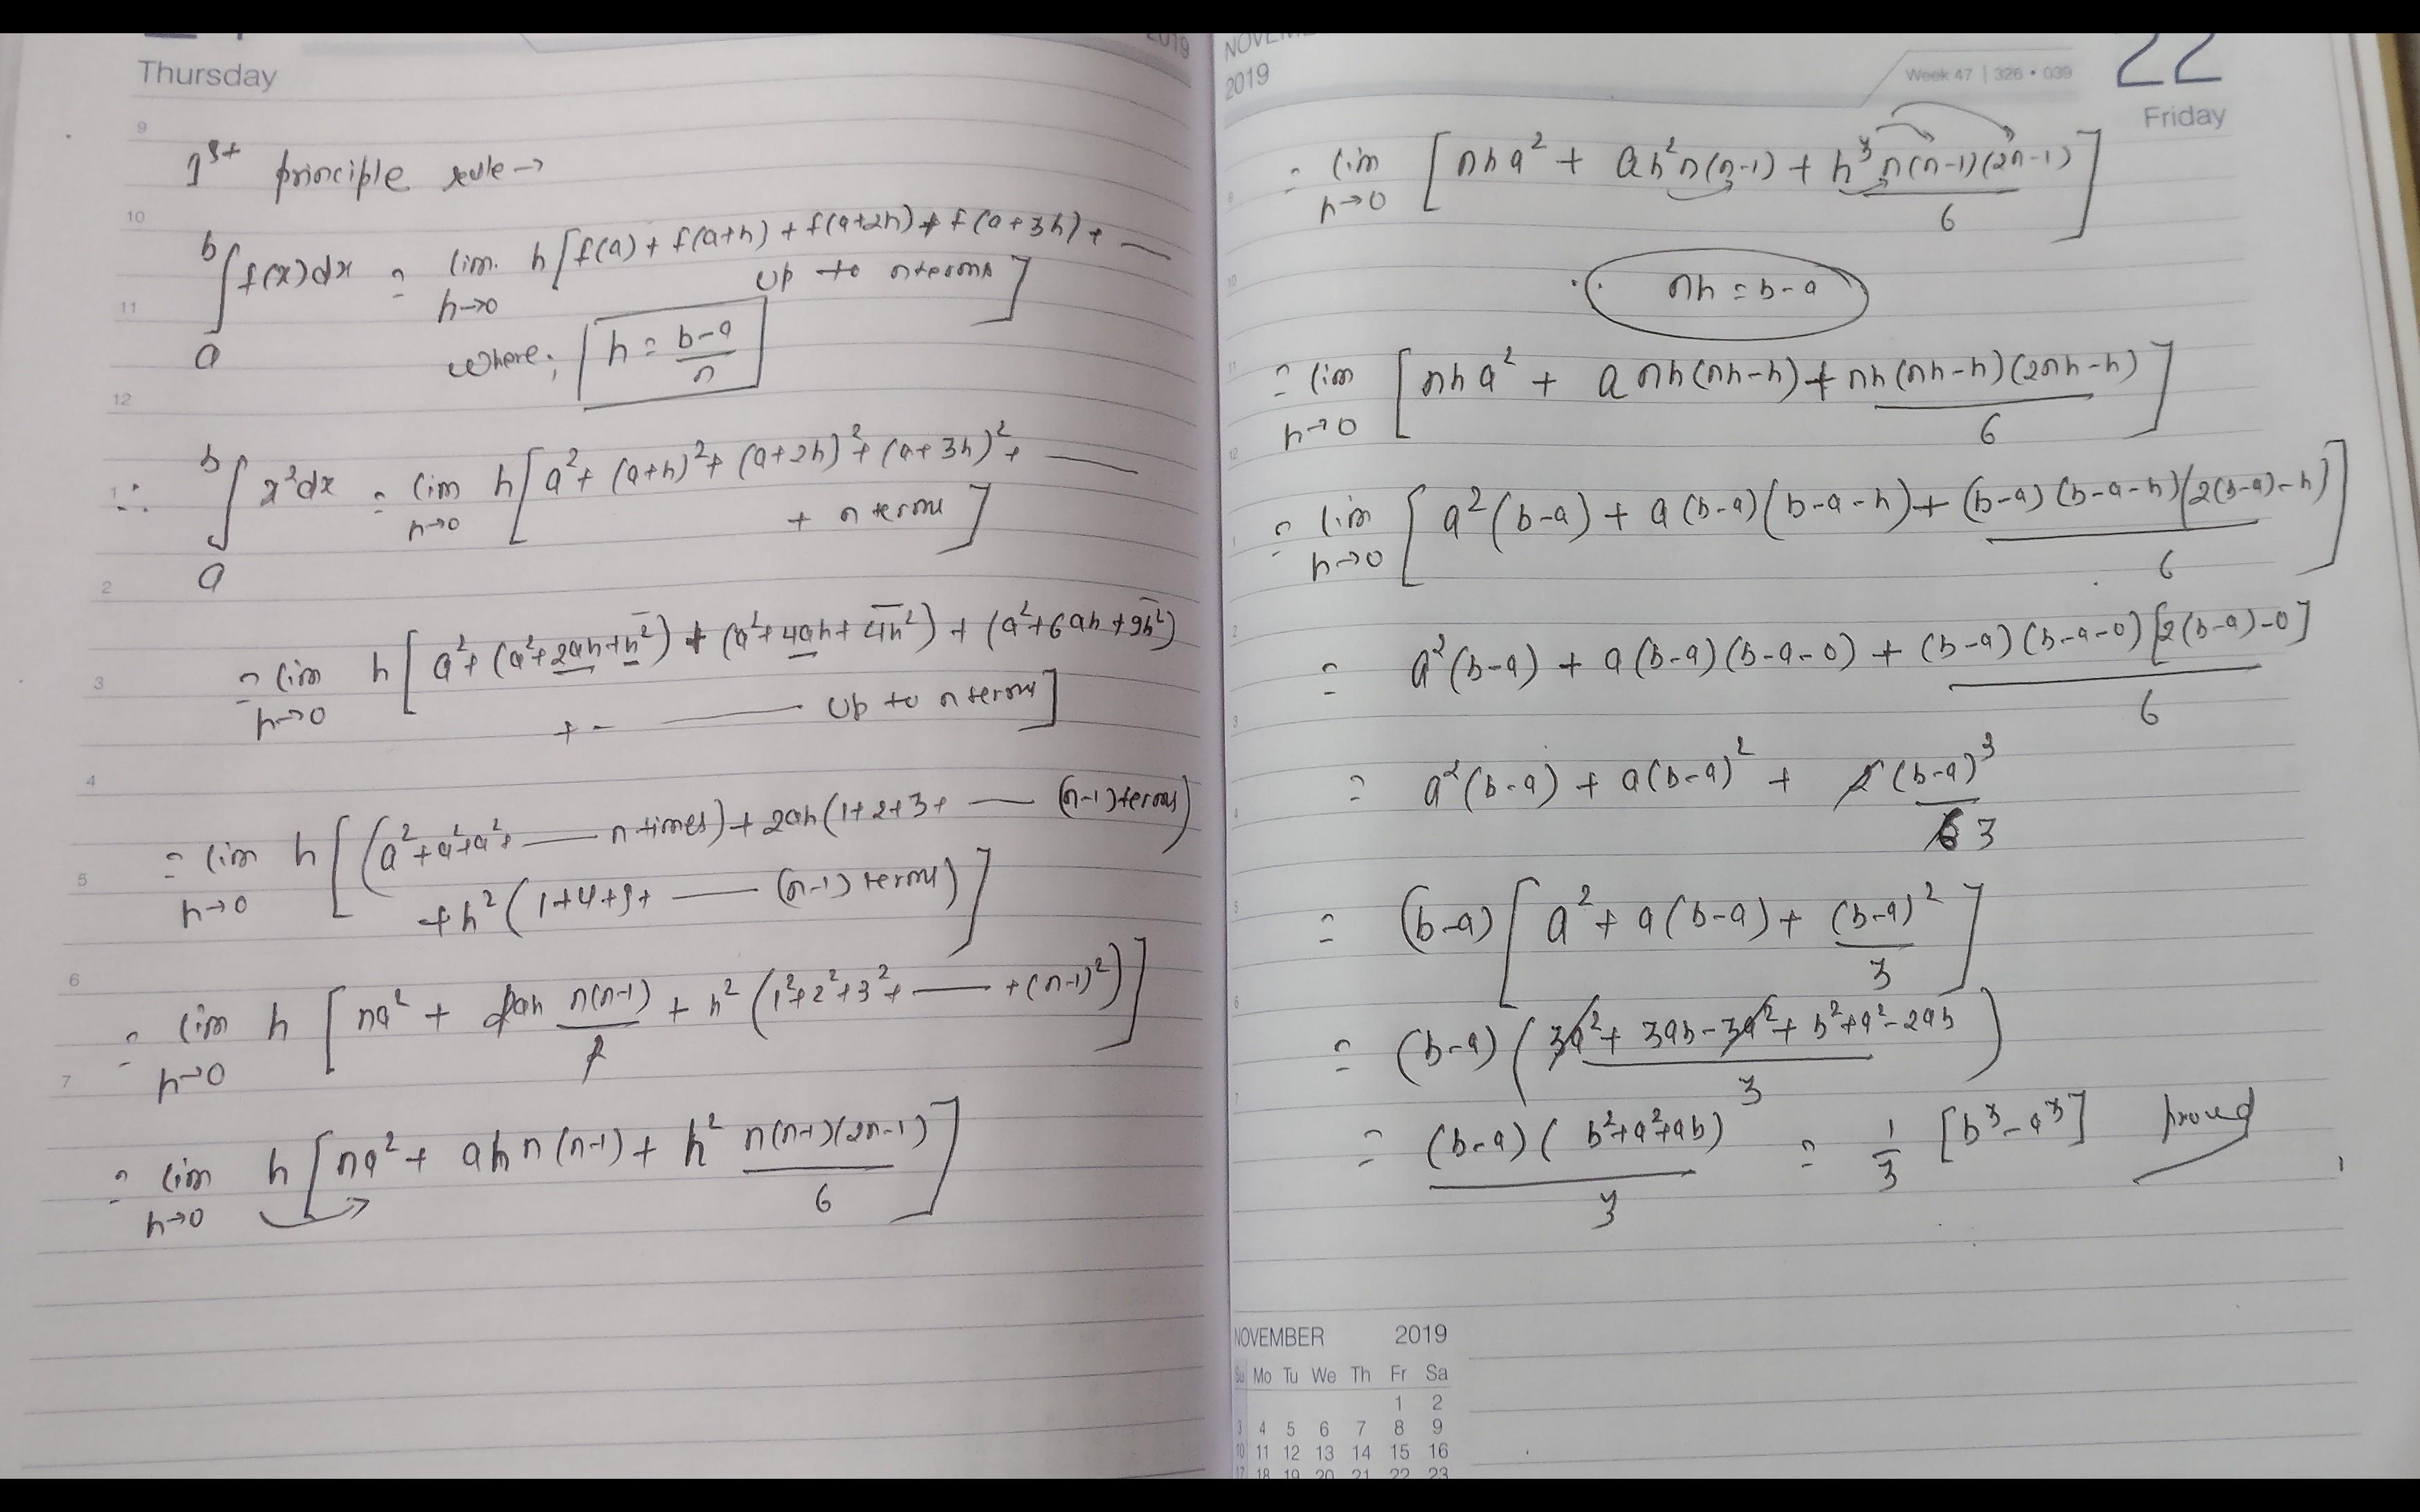 Thursday
2019
9
1st principle rule →
10
b∫a f(x)dx = lim h→0 h[f(a) + f(a+h) + f(a+2h) + f(a+3h) + —
up to n terms]
11
where; h = (b-a)/n
12
1
∴ b∫a x²dx = lim h→0 h[a² + (a+h)² + (a+2h)² + (a+3h)² + —
+ n terms]
2
3
= lim h→0 h[a² + (a²+2ah+h²) + (a²+4ah+4h²) + (a²+6ah+9h²)
+ - — up to n terms]
4
= lim h→0 h[(a²+a²+a²+ — n times) + 2ah(1+2+3+ — (n-1)terms)
5
+h²(1+4+9+ — (n-1) terms)]
6
= lim h→0 h[na² + 2ah n(n-1)/2 + h²(1²+2²+3²+ — +(n-1)²)]
7
= lim h→0 h[na² + ah n(n-1) + h² n(n-1)(2n-1)/6]
2019
Week 47 | 326 • 039
22
Friday
= lim h→0 [nha² + ah²n(n-1) + h³n(n-1)(2n-1)/6]
∵ nh = b-a
= lim h→0 [nha² + a nh(nh-h) + nh(nh-h)(2nh-h)/6]
= lim h→0 [a²(b-a) + a(b-a)(b-a-h) + (b-a)(b-a-h)(2(b-a)-h)/6]
= a²(b-a) + a(b-a)(b-a-0) + (b-a)(b-a-0)[2(b-a)-0]/6
= a²(b-a) + a(b-a)² + 2(b-a)³/6 3
= (b-a)[a² + a(b-a) + (b-a)²/3]
= (b-a)(3a² + 3ab - 3a² + b² + a² - 2ab)/3
= (b-a)(b²+a²+ab)/3 = 1/3 [b³-a³] proved
NOVEMBER 2019
Su Mo Tu We Th Fr Sa
1 2
3 4 5 6 7 8 9
10 11 12 13 14 15 16
17 18 19 20 21 22 23